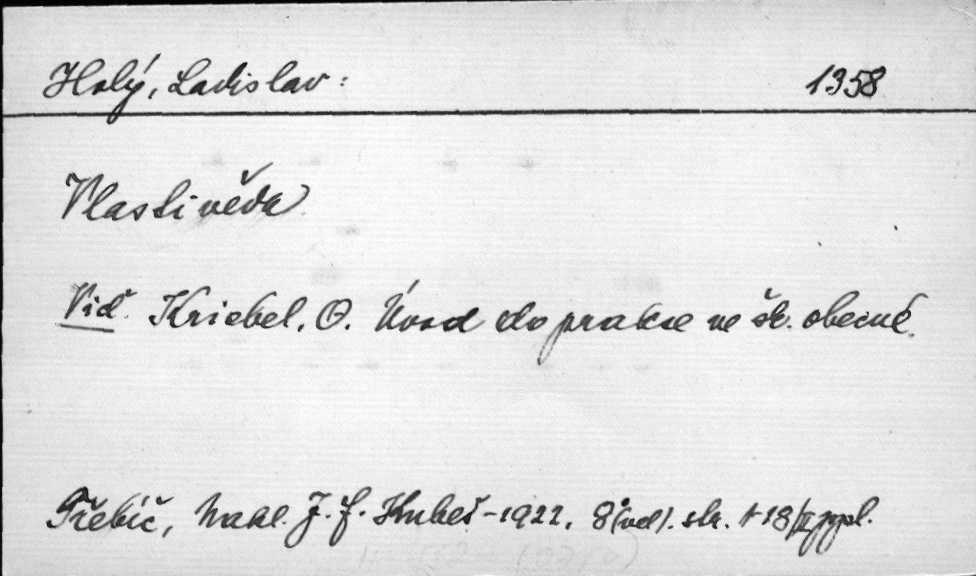 Holý, Ladislav: 1358
Vlastivěda
Viď. Kriebel, O. Úvod do prakse ve šk. obecné.
Třebíč, Nakl. J. F. Kubeš - 1922. 8°(vel). str. 18